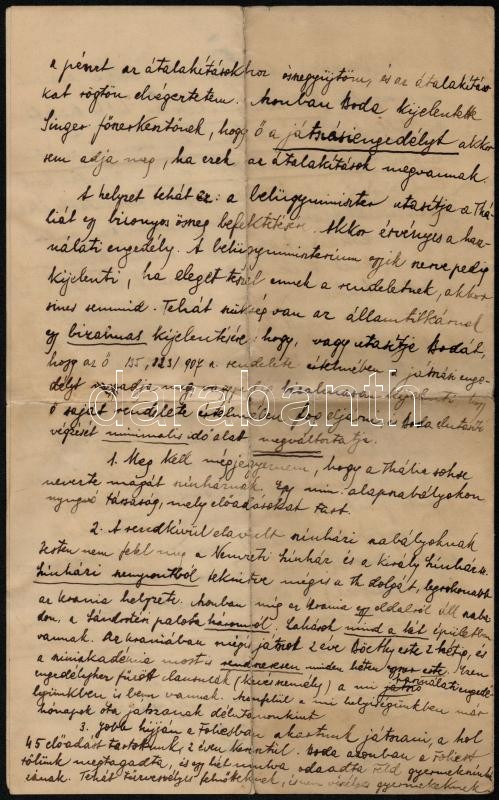 a pénzt az átalakításokhoz összegyűjtöm, és az átalakításo-
kat rögtön elvégeztetem. Azonban Boda kijelentette
Singer főszerkesztőnek, hogy ő a játszási engedélyt akkor
sem adja meg, ha ezek az átalakítások megvannak.
A helyzet tehát ez: a belügyminiszter utasítja a Thá-
liát egy bizonyos összeg befektetésére. Akkor érvényes a hasz-
nálati engedély. A belügyminisztérium egyik szerve pedig
kijelenti, ha eleget teszel ennek a rendeletnek, akkor
sincs semmid. Tehát szükség van az államtitkárnak
egy bizalmas kijelentésére: hogy, vagy utasítja Bodát,
hogy az ő 135,123/907 sz. rendelete értelmében játszási enge-
délyt adja meg, vagy
ő saját rendelete értelmében fog eljárni a Boda elutasító
végzését minimális idő alatt megváltoztatja.
1. Meg kell még jegyeznem, hogy a Thália sohse
nevezte magát színháznak. Egy min. alapszabályokon
nyugvó társaság, mely előadásokat tart.
2. A rendkívül elavult színházi szabályoknak
Pesten nem felel meg a Nemzeti Színház és a Király Színház.
Színházi szempontból tekintve mégis a Th. dolgát, legrokonabb
az Uránia helyzete. Azonban míg az Uránia egy oldalról áll szaba-
don, a Sándortéri palota háromról. Lakások mind a két épületben
vannak. Az Urániában mégis játszott 2 éve Beöthy este 2 hétig, és
a sziniakadémia most is rendszeresen minden héten egyszer este. Ezen
engedélyhez fűzött clausulák (kevés személy) a mi használati engedé-
lyünkben is benne vannak. Azonfelül a mi helyiségünkben már
hónapok óta játszanak délutánonkint.
3. Jobb híján a Foliesban akartunk játszani, a hol
45 előadást tartottunk, 2 éven keresztül. Boda azonban a Foliest
tőlünk megtagadta, és egy hét múlva odaadta Feld gyermekszínhá-
zának. Tehát